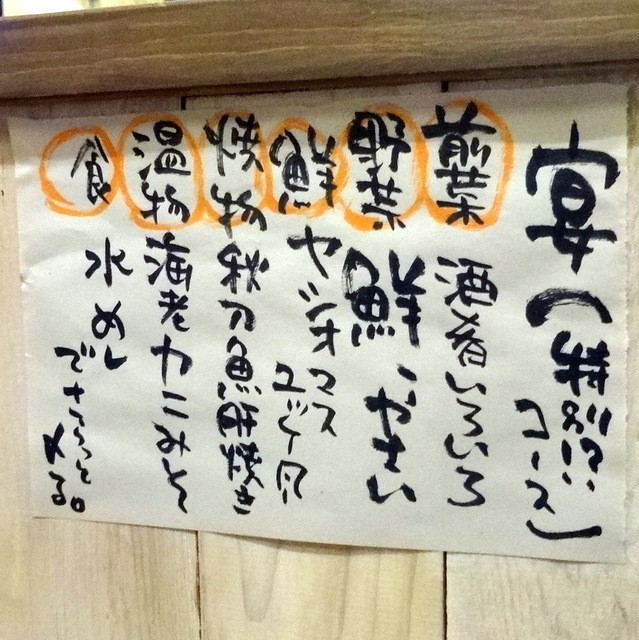 宴(特別!?コース)
前菜 酒肴いろいろ
野菜 鮮、やさい
鮮 ヤシオマス
焼物 秋刀魚肝焼き
温物 海老カニみそ
食 水めし
でさらっと
〆る。